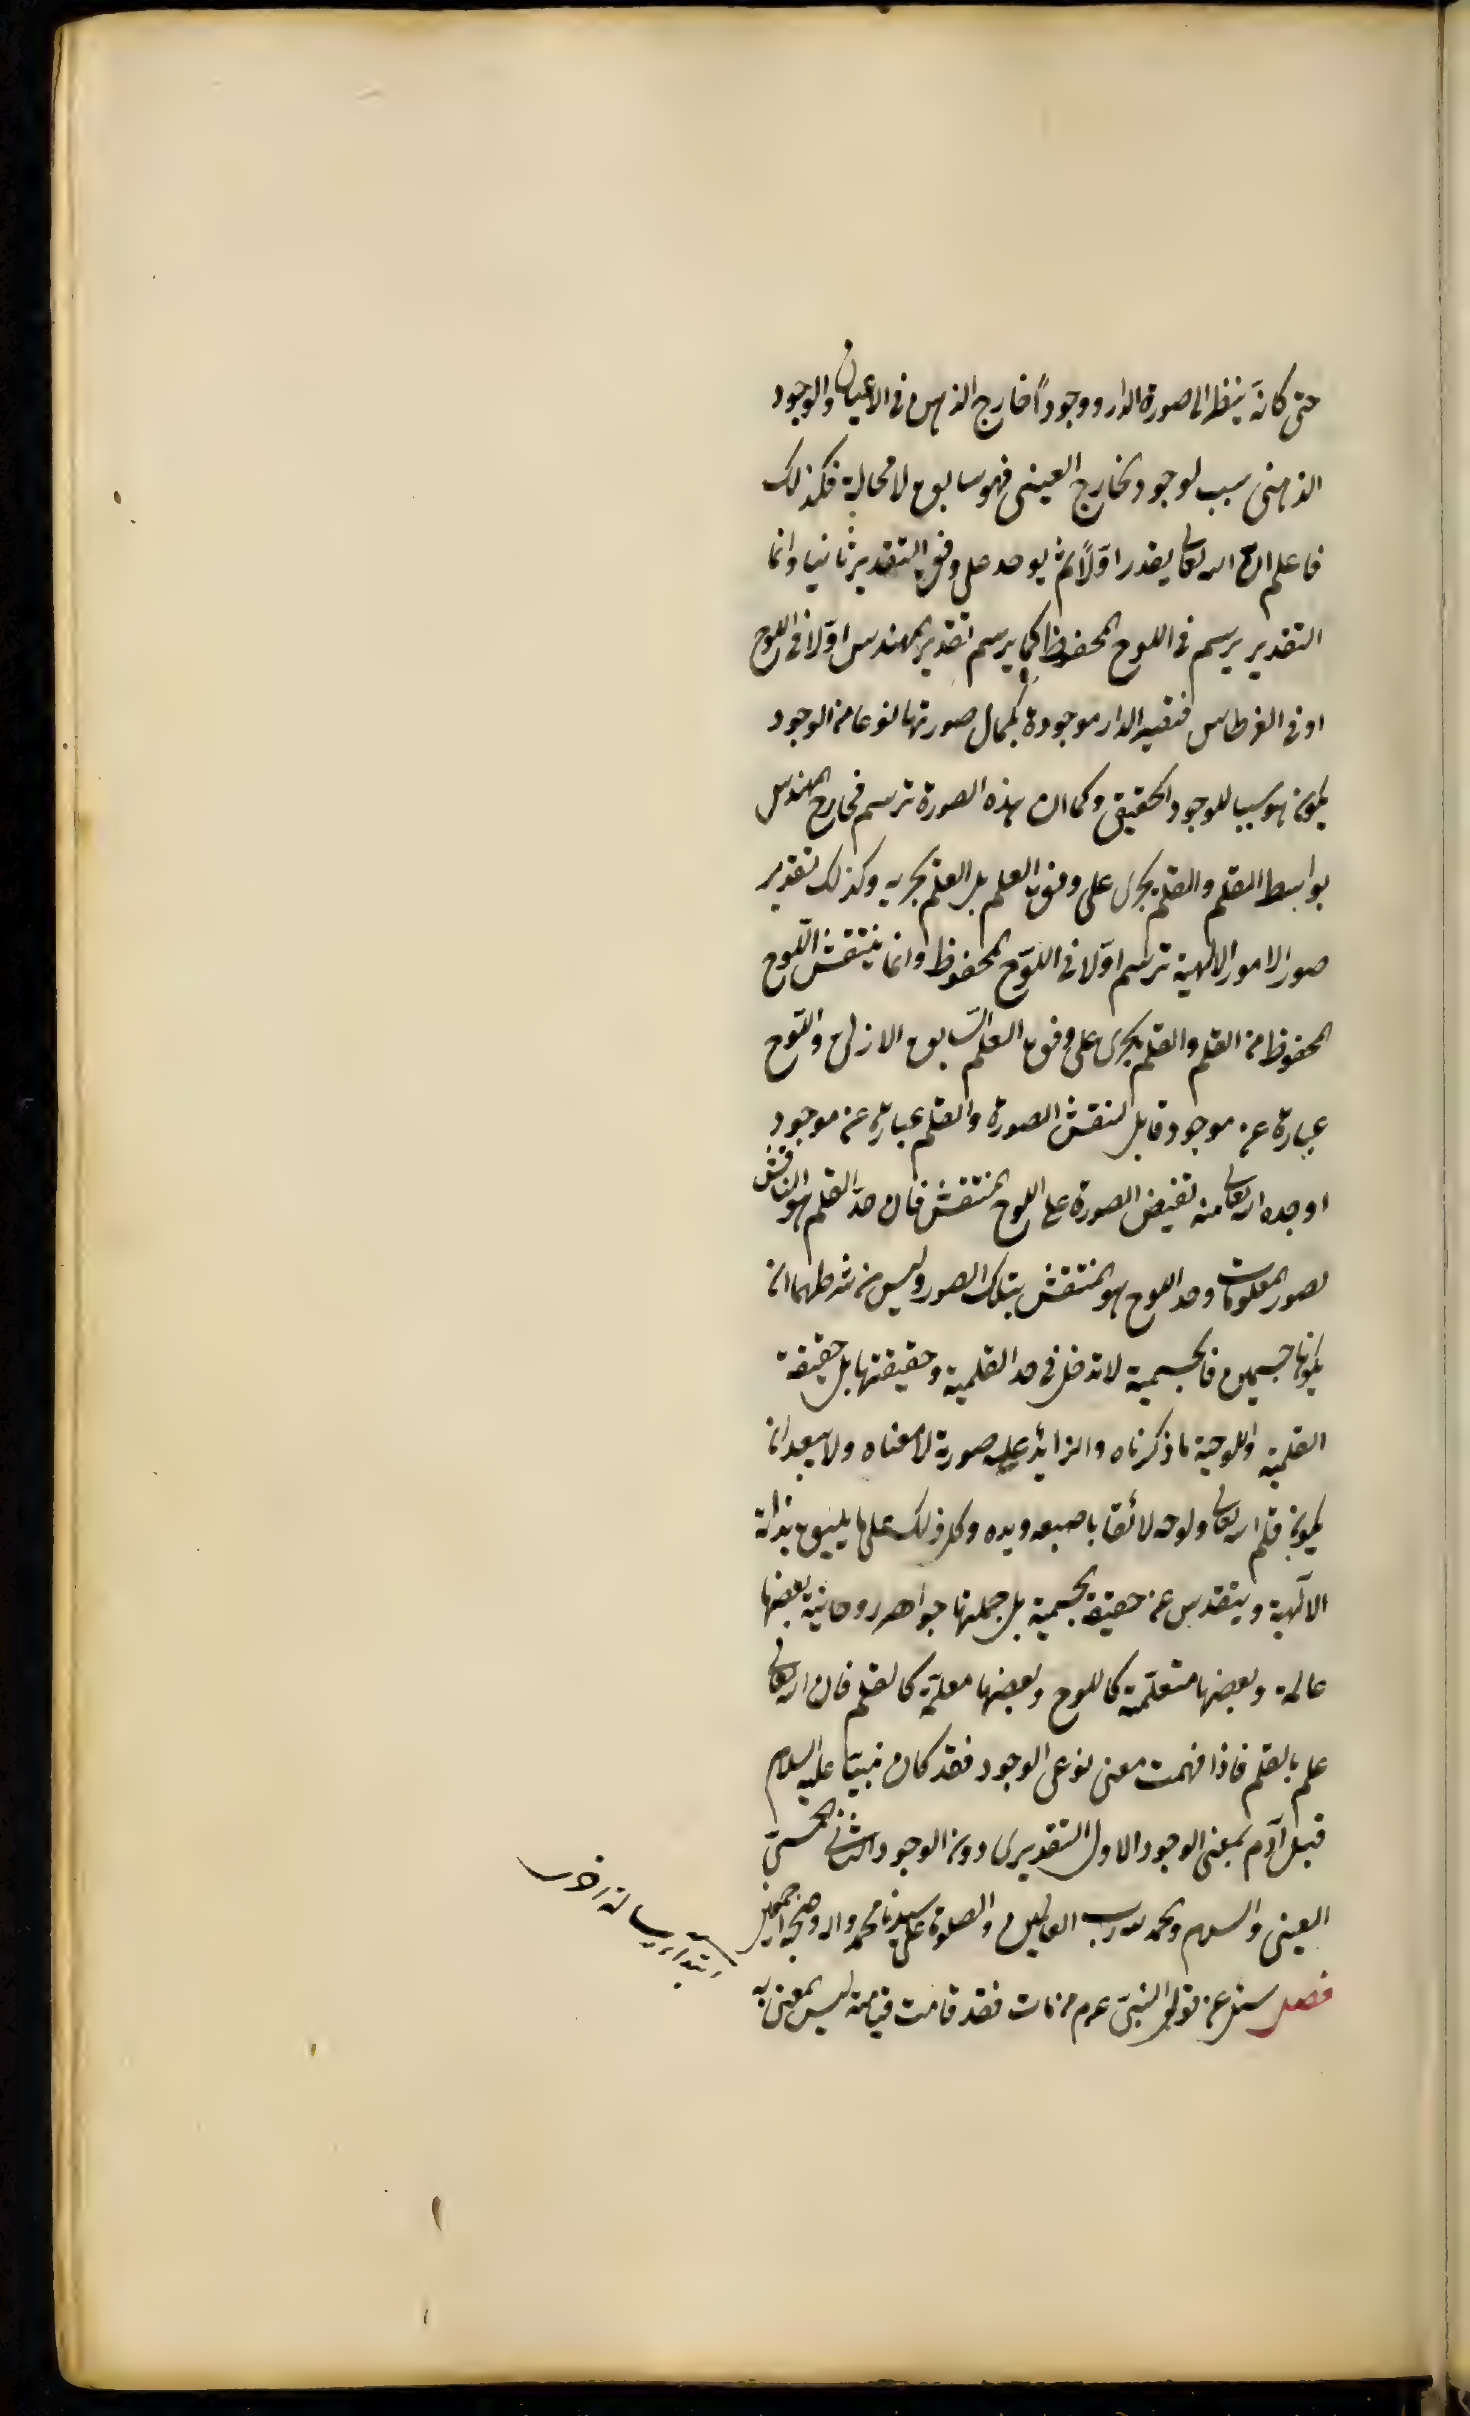 حتى كانه ينظر الى صورة الدار ووجوداً خارج الذهن فى الاعيان والوجود
الذهنى سبب لوجود الخارج العينى فهو سابق لا محالة فكذلك
فاعلم ان الله تعالى يقدر اوّلاً ثم يوجد على وفق التقدير ثانيا وانما
التقدير يرسم فى اللوح المحفوظ كما يرسم تقدير المهندس اوّلا فى اللوح
او فى القرطاس فتصير الدار موجودة بكمال صورتها نوعا من الوجود
يكون هو سببا للوجود الحقيقى وكما ان هذه الصورة ترسم فى لوح المهندس
بواسط القلم والقلم يجرى على وفق العلم بل العلم يجريه وكذلك تقدير
صور الامور الالهية ترسم اوّلا فى اللوّح المحفوظ وانما ينتقش اللّوح
المحفوظ من القلم والقلم يجرى على وفق العلم السّابق الازلى واللّوح
عبارة عن موجود قابل لنقش الصورة والقلم عبارة عن موجود
اوجده الله تعالى منه تفيض الصورة على اللوح المنتقش فان حدّ القلم هو الناقش
لصور المعلومات وحد اللوح هو المنتقش بتلك الصور وليس من شرطهما ان
يكونا جسمين فالجسمية لا تدخل فى حد القلمية وحقيقتها بل حقيقة
القلمية واللوحية ما ذكرناه والزايد عليه صورية لا معناه ولا يبعد ان
يكون قلم الله تعالى ولوحه لائقا باصبعه ويده وكل ذلك على ما يليق بذاته
الآلهية ويتقدس عن حقيقة الجسمية بل جملتها جواهر روحانية بعضها
عالمة وبعضها متعلّمة كاللوح وبعضها معلّمة كالقلم فان الله تعالى
علم بالقلم فاذا فهمت معنى نوعى الوجود فقد كان نبيّنا عليه السلام
قبل آدم بمعنى الوجود الاول التقديرى دون الوجود الثانى الحسّى
العينى والسلام والحمد لله رب العالمين والصلوة على سيدنا محمد واله وصحبه اجمعين
ابتداء رسالة اخرى
فصل سئل عن قول النبىّ عم من مات فقد قامت قيامته ليس المعنى به